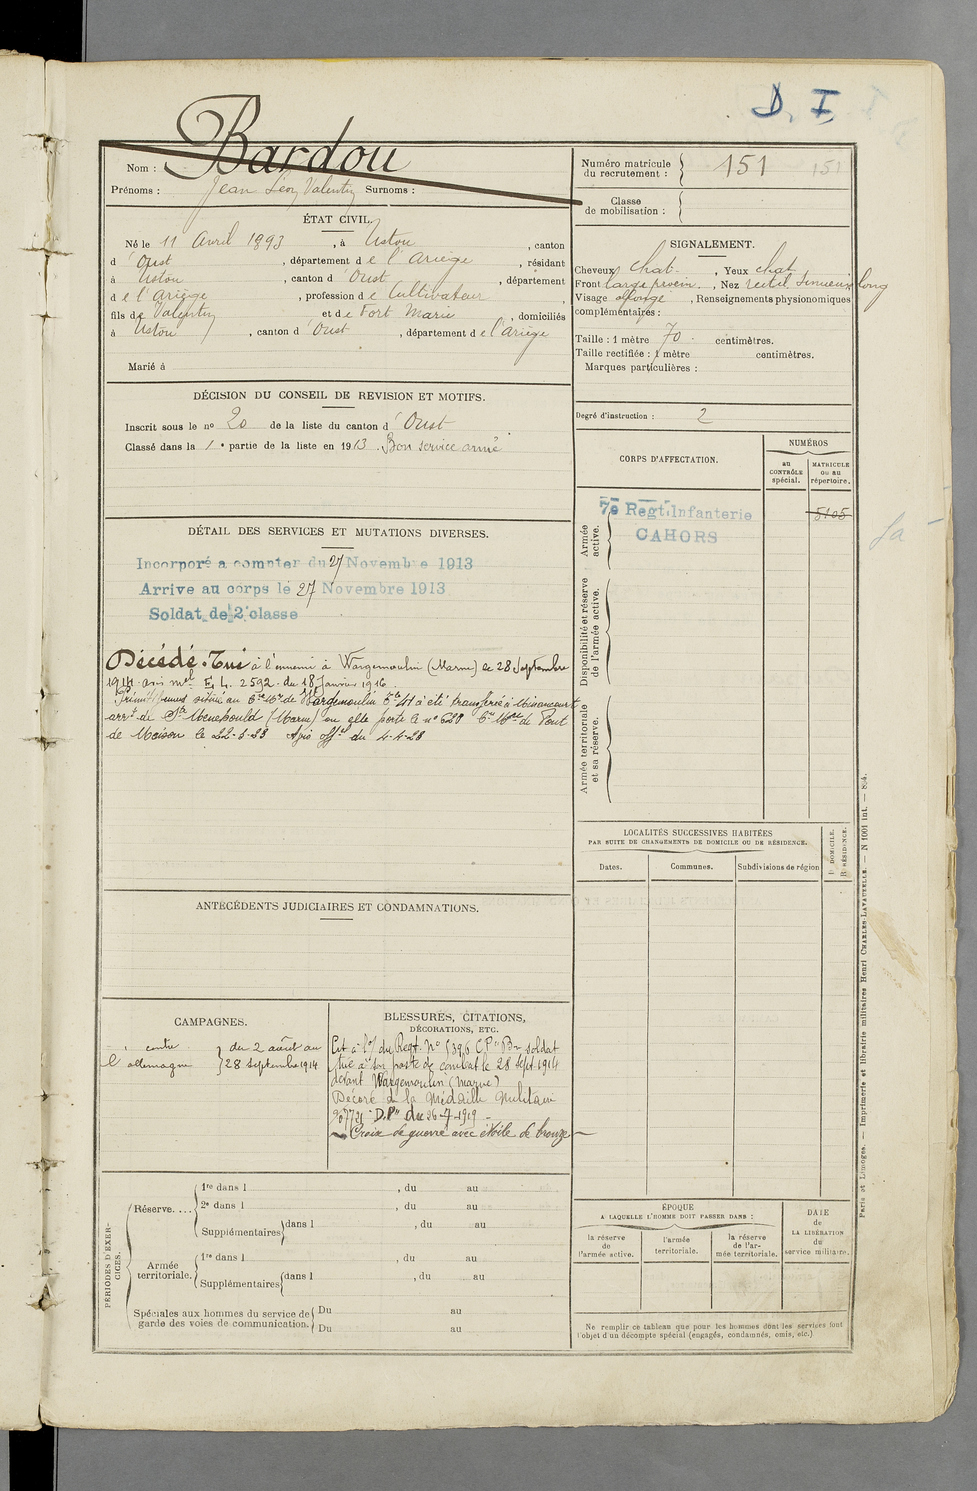 D. I
Nom : Bardou
Prénoms : Jean Léon Valentin Surnoms :
Numéro matricule
du recrutement : 151
Classe
de mobilisation :
ÉTAT CIVIL.
Né le 11 Avril 1893, à Ustou, canton
d'Oust, département de l'Ariège, résidant
à Ustou, canton d'Oust, département
de l'Ariège, profession de Cultivateur,
fils de Valentin et de Fort Marie, domiciliés
à Ustou, canton d'Oust, département de l'Ariège
Marié à
SIGNALEMENT.
Cheveux chat., Yeux chat.
Front large, Nez rectil. sinueux long
Visage allongé, Renseignements physionomiques
complémentaires :
Taille : 1 mètre 70 centimètres.
Taille rectifiée : 1 mètre centimètres.
Marques particulières :
Degré d'instruction : 2
DÉCISION DU CONSEIL DE REVISION ET MOTIFS.
Inscrit sous le nº 20 de la liste du canton d'Oust
Classé dans la 1e partie de la liste en 1913. Bon service armé
CORPS D'AFFECTATION.
NUMÉROS
au
CONTRÔLE
spécial.
MATRICULE
ou au
répertoire.
Armée
active.
7e Regt. Infanterie
CAHORS
5105
Disponibilité et réserve
de l'armée active.
Armée territoriale
et sa réserve.
DÉTAIL DES SERVICES ET MUTATIONS DIVERSES.
Incorporé a compter du 27 Novembre 1913
Arrive au corps le 27 Novembre 1913
Soldat de 2e classe
Décédé. Tué à l'ennemi à Wargemoulin (Marne) le 28 Septembre
1914 avis mel E, L. 2592 du 18 Janvier 1916
située au de Wargemoulin à été transférée à Minaucourt
arrt de Ste Menehould (Marne) ou elle porte le nº 628 de Pont
de Maison le 22-3-23 Avis offel du 4-4-28
LOCALITÉS SUCCESSIVES HABITÉES
PAR SUITE DE CHANGEMENTS DE DOMICILE OU DE RÉSIDENCE.
Dates.
Communes.
Subdivisions de région
D. DOMICILE.
R. RÉSIDENCE.
ANTÉCÉDENTS JUDICIAIRES ET CONDAMNATIONS.
CAMPAGNES.
contre
l'allemagne
du 2 août au
28 septembre 1914
BLESSURES, CITATIONS,
DÉCORATIONS, ETC.
Cit à l'O/ du Regt. Nº soldat
tué à son poste de combat le 28 Sept. 1914
devant Wargemoulin (Marne)
Décoré de la Médaille Militaire
"D.P" du 1919
Croix de guerre avec étoile de bronze
PÉRIODES D'EXERCICES.
Réserve....
1re dans l , du au
2e dans l , du au
Supplémentaires dans l , du au
Armée
territoriale.
1re dans l , du au
Supplémentaires dans l , du au
Spéciales aux hommes du service de
garde des voies de communication.
Du au
Du au
ÉPOQUE
A LAQUELLE L'HOMME DOIT PASSER DANS :
la réserve
de
l'armée active.
l'armée
territoriale.
la réserve
de l'ar-
mée territoriale.
DATE
de
LA LIBÉRATION
du
service militaire.
Ne remplir ce tableau que pour les hommes dont les services font
l'objet d'un décompte spécial (engagés, condamnés, omis, etc.)
Paris et Limoges. — Imprimerie et librairie militaires Henri CHARLES-LAVAUZELLE. — N 1001 int. — 8.4.